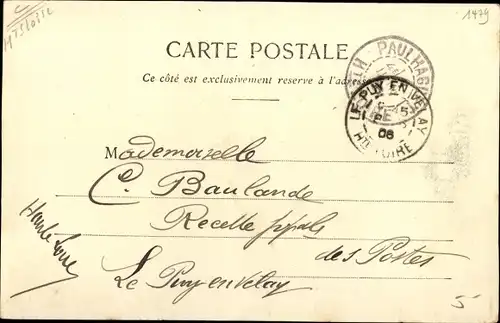 1479
CARTE POSTALE
Ce côté est exclusivement reserve à l'adresse
PAULHAGUET
LE PUY EN VELAY
5
06
Hte LOIRE
Mademoiselle
C. Baulande
Recette ppale
des Postes
Le Puy en Velay
Haute Loire
5